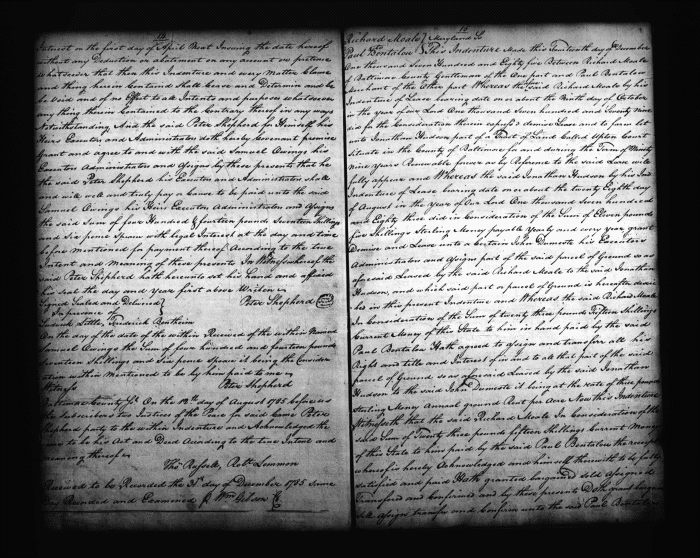 14
Interest on the first day of April Next Insuing the date hereof
without any Deduction or abatement on any account or pretence
whatsoever that then this Indenture and every Matter Clause
and thing herein Contained shall Cease and Determin and be
be Void and of no Effect to all Intents and purposes whatsoever
any thing herein Contained to the Contrary thereof in any ways
Notwithstanding And the said Peter Shepherd for Himself his
Heirs Executors and Administrators doth hereby Covenant promise
Grant and agree to and with the said Samuel Owings his
Executors Administrators and Assigns by these presents that he
the said Peter Shepherd his Executors and Administrators shall
and will well and truly pay or Cause to be paid unto the said
Samuel Owings his Heirs Executors Administrators and Assigns
the said Sum of four Hundred & fourteen pounds Seventeen Shillings
and six pence Specie with legal Interest at the day and time
before mentioned for payment thereof According to the true
Intent and Meaning of these presents In Witness whereof the
said Peter Shepherd hath hereunto set his hand and affixed
his seal the day and year first above Written
Signed Sealed and Delivered } Peter Shepherd
In presence of
Little, Frederick
On the day of the date of the within Received of the within Named
Samuel Owings the Sum of four hundred and fourteen pounds
Seventeen Shillings and six pence Specie it being the Consider
ation within Mentioned to be by him paid to me
Witness Peter Shepherd
Baltimore County Ss. On the 18th day of August 1785 before us
the Subscribers two Justices of the Peace for said County Came Peter
Shepherd party to the within Indenture and Acknowledged the
same to be his Act and Deed According to the true Intent and
meaning thereof
Thos Russell, Robt Lemmon
Received to be Recorded the 3d day of December 1785 same
Day Recorded and Examined Wm Gibson
Richard Moale } Maryland Ss
Paul Bentalou } This Indenture Made this day of December
One thousand Seven Hundred and Eighty five Between Richard Moale
of Baltimore County Gentleman of the One part and Paul Bentalou
Merchant of the Other part Whereas the said Richard Moale by his
Indenture of Lease bearing date on or about the Ninth day of October
in the year of our Lord One thousand Seven hundred and Seventy nine
did for the Consideration therein expressed demise Lease and to farm let
unto Jonathan Hudson part of a Tract of Land Called Upton Court
situate in the County of Baltimore for and during the Term of Ninety
nine years Renewable forever as by Reference to the said Lease will
fully appear and Whereas the said Jonathan Hudson by his Ind
Indenture of Lease bearing date on or about the twenty Eighth day
of August in the year of Our Lord One thousand Seven hundred
and Eighty three did in Consideration of the Sum of Eleven pounds
five Shillings Sterling Money payable Yearly and every year grant
Demise and Lease unto a Certain John Demoste his Executors
Administrators and Assigns part of the said parcel of Ground so as
aforesaid Leased by the said Richard Moale to the said Jonathan
Hudson, and which said part or parcel of Ground is hereafter descri
bed in this present Indenture and Whereas the said Richard Moale
In Consideration of the Sum of twenty three pounds Fifteen Shillings
Current Money of the State to him in hand paid by the said
Paul Bentalou Hath agreed to assign and transfer all his
Right and title and Interest of in and to all that part of the said
parcel of Ground so as aforesaid Leased by the said Jonathan
Hudson to the said John Demoste it being at the rate of three pounds
Sterling Money Annual ground Rent per Acre Now this Indenture
Witnesseth that the said Richard Moale In Consideration of the
said Sum of Twenty three pounds fifteen Shillings Current Money
of the State to him paid by the said Paul Bentalou the receipt
whereof is hereby Acknowledged and himself therewith to be fully
satisfied and paid Hath granted bargained sold assigned
Transferred and Confirmed and by these presents Doth grant bargain
sell assign transfer and Confirm unto the said Paul Bentalou